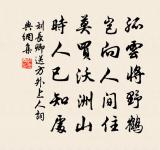 孤雲將野鶴
豈向人間住
莫買沃洲山
時人已知處
劉長卿送方外上人詞
典網集